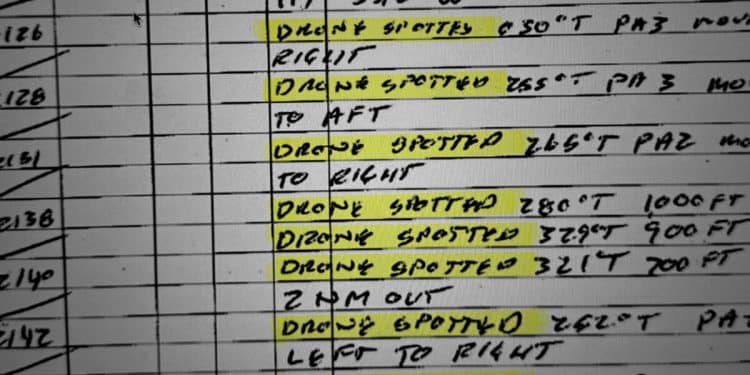 2126 DRONE SPOTTED 030°T PA3 MOV
RIGHT
2128 DRONE SPOTTED 255°T PA 3 MO
TO AFT
2131 DRONE SPOTTED 265°T PA2 MO
TO RIGHT
2138 DRONE SPOTTED 280°T 1000 FT
DRONE SPOTTED 329°T 900 FT
2140 DRONE SPOTTED 321°T 700 FT
2 NM OUT
2142 DRONE SPOTTED 262°T PA
LEFT TO RIGHT